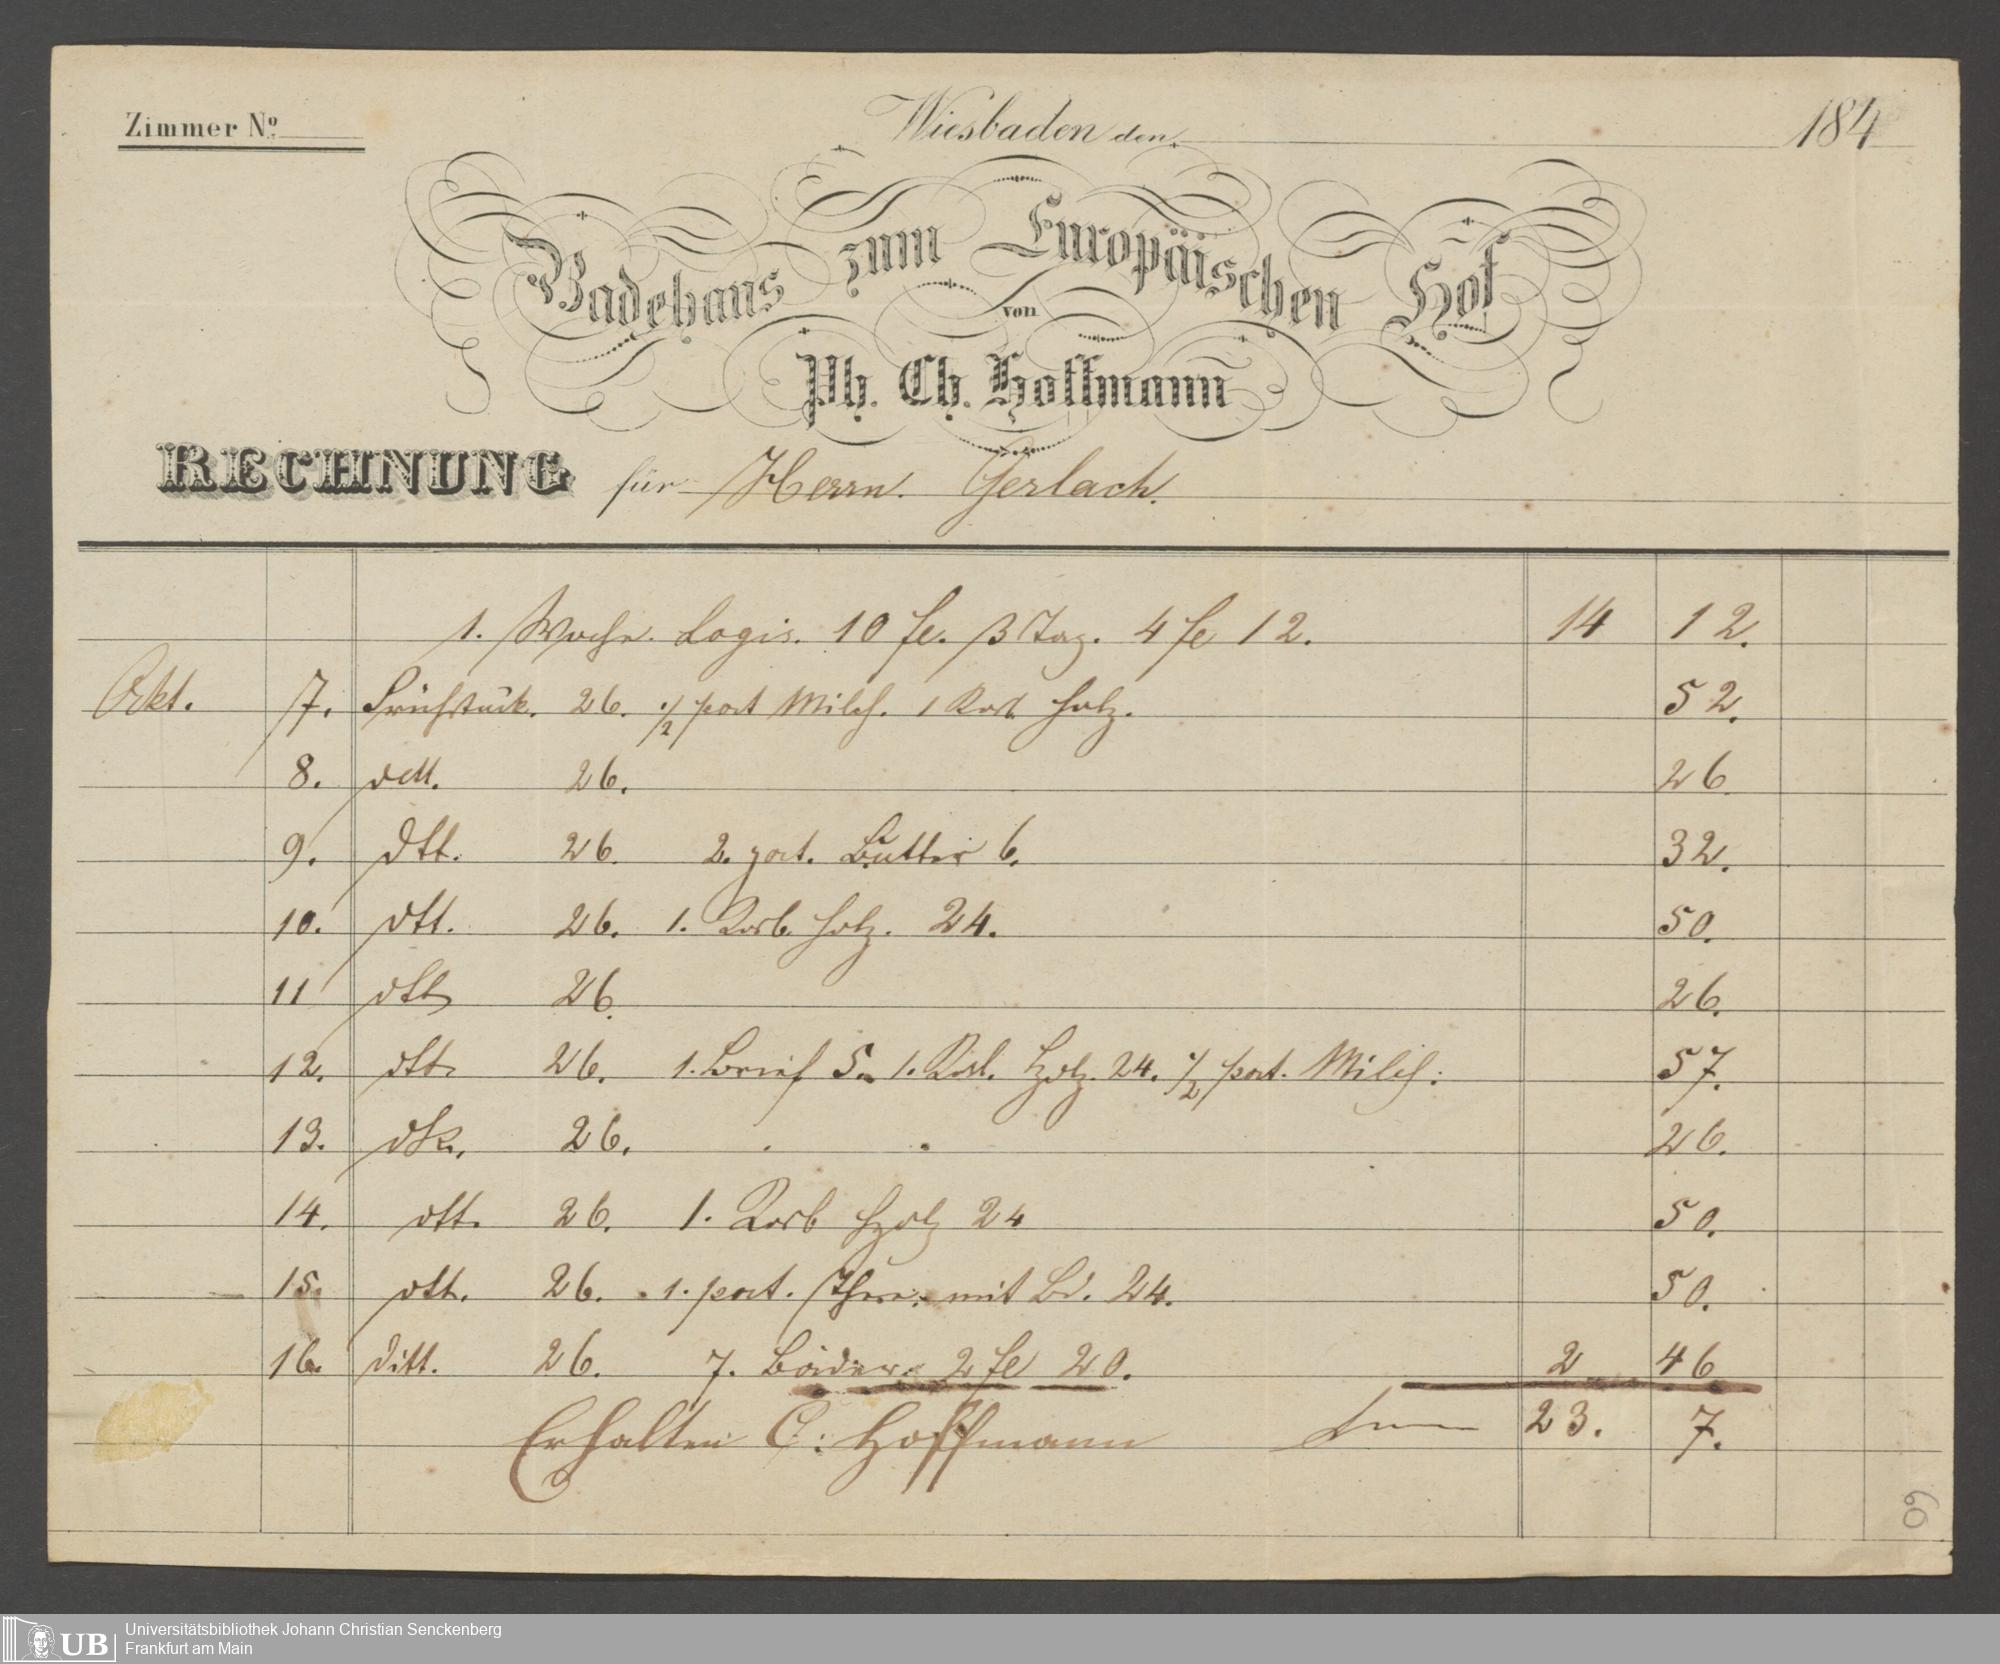 Zimmer No.
Wiesbaden den 184
Badehaus zum Europäischen Hof
von
Ph. Ch. Hoffmann
RECHNUNG für Herrn Gerlach.
1. Woche Logis. 10 fl. 3 Tag. 4 fl 12. 14 12.
Okt. 7. Früstück. 26. 1/2 port Milch. 1 Korb Holz. 52.
8. dtt. 26. 26.
9. dtt. 26. 2. port. Butter 6. 32.
10. dtt. 26. 1. Korb Holz. 24. 50.
11 dtt 26. 26.
12. dtt. 26. 1. Brief 5. 1. Korb. Holz. 24. 1/2 port. Milch: 57.
13. dtt. 26. 26.
14. dtt. 26. 1. Korb Holz 24 50.
15. dtt. 26. 1. port. Thee. mit Bd. 24. 50.
16. ditt. 26. 7. Bäder. 2 fl 20. 2 46
Erhalten C: Hoffmann 23. 7.
60
UB
Universitätsbibliothek Johann Christian Senckenberg
Frankfurt am Main